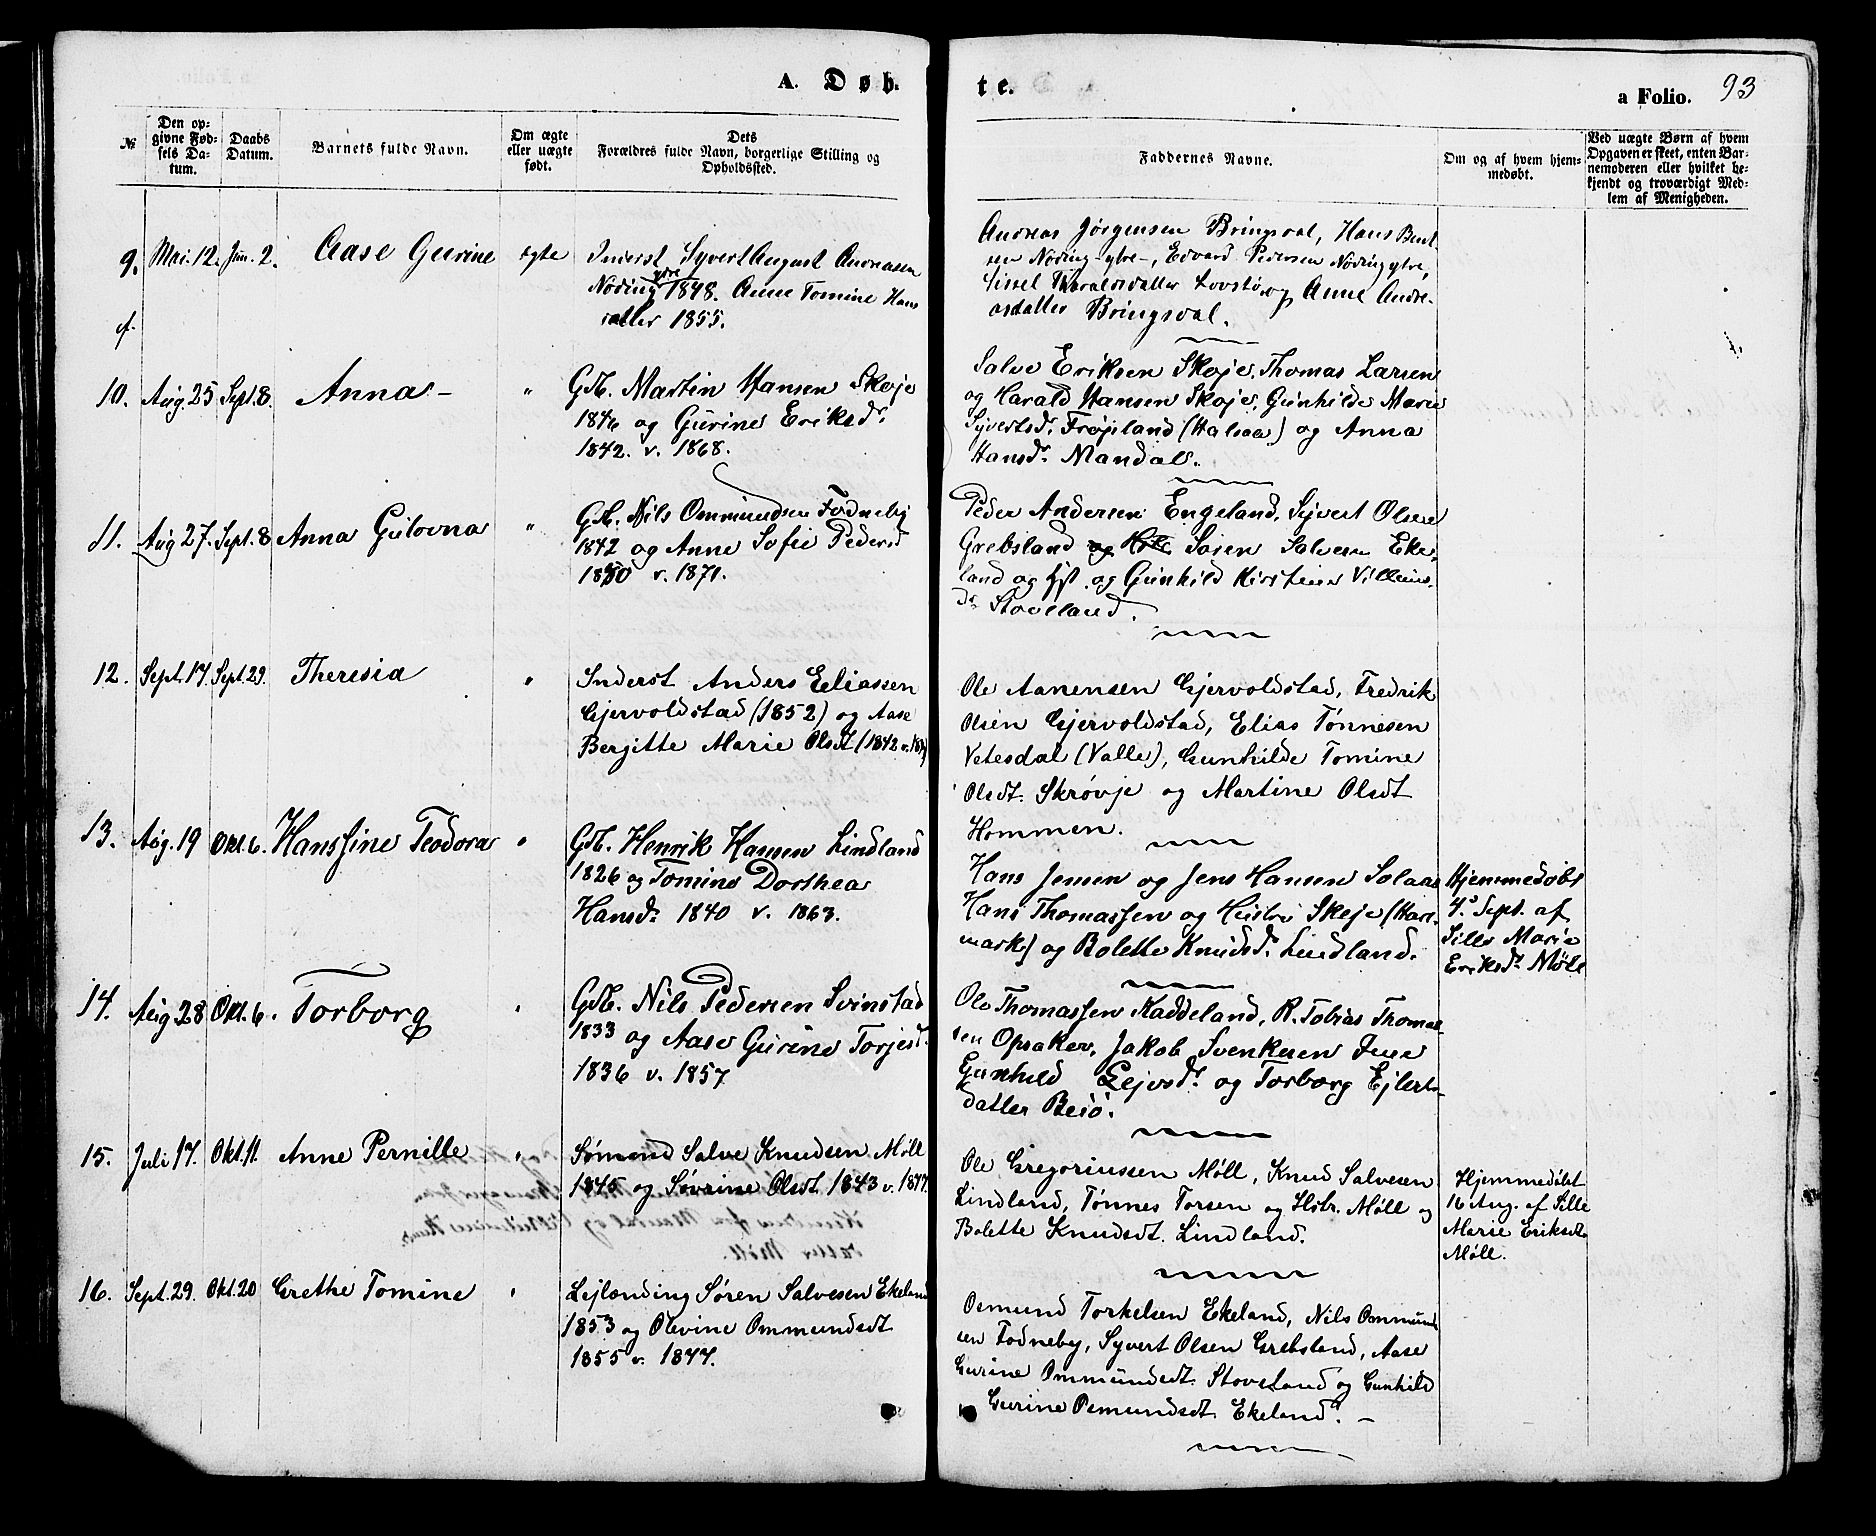 A. Døb-
te.
a Folio. 93
№
Den op-
givne Fød-
sels Da-
tum.
Daabs
Datum.
Barnets fulde Navn.
Om ægte
eller uægte
født.
Dets
Forældres fulde Navn, borgerlige Stilling og
Opholdssted.
Faddernes Navne.
Om og af hvem hjem-
medøbt.
Ved uægte Børn af hvem
Opgaven er skeet, enten Bar-
nemoderen eller hvilket be-
kjendt og troværdigt Med-
lem af Menigheden.
9. Mai. 12. Jun. 2. Aase Gurine ægte
Inderst Syvert August Andreasen
Nøding ytre 1848. Anne Tomine Hans
datter 1855.
Andreas Jørgensen Bringsval, Hans Bent
sen Nøding ytre, Edvard Pedersen Nøding ytre,
Sissel Tharaldsdatter og Anne Andre-
asdatter Bringsval.
10. Aug. 25 Sept. 8. Anna - "
Gdb. Martin Hansen Skoje
1846 og Gurine Eriksdr.
1842. v. 1868.
Salve Eriksen Skoje, Thomas Larsen
og Harald Hansen Skoje, Gunhilde Marie
Syvertsdr. Frøjsland (Halsaa) og Anna
Hansdr. Mandal.
11. Aug 27. Sept. 8 Anna Gulovna "
Gdb. Nils Ommundsen Fodneby
1842 og Anne Sofie Pedersd
1850 v. 1871.
Peder Andersen Engeland, Syvert Olsen
Grebsland Søren Salvesen Eke,
land og og Gunhild Kirstine Villums
dr. Stoveland.
12. Sept. 17. Sept. 29. Theresia "
Inderst Anders Eeliassen
Gjervoldstad (1852) og Aase
Bergitte Marie Olsdt (1842 v.
Ole Aanensen Gjervoldstad, Fredrik
Olsen Gjervoldstad, Elias Tønnesen
Vetesdal (Valle), Gunhilde Tomine
Olsdt. Skrøvje og Martine Olsdt
Hommen.
13. Aug. 19 Okt. 6. Hanssine Teodora "
Gdb. Henrik Hansen Lindland
1826 og Tomine Dorthea
Hansdr. 1840 v. 1863.
Hans Jensen og Jens Hansen Solaas
Hans Thomassen og Hustru Skeje (Har-
mark) og Bolette Knudsdr. Lindland.
Hjemmedøbt
4. Sept. af
Sille Marie
Eriksdr. Møll
14. Aug 28 Okt. 6. Torborg "
Gdb. Nils Pedersen Svinstad
1833 og Aase Gurine Torjesd.
1836 v. 1857
Ole Thomassen Kaddeland, R. Tobias Thomas
sen Opsaker, Jakob Svenksen
Gunhild Lejvsdr. og Torborg Ejlerts-
datter Besø.
15. Juli 17. Okt. 11. Anne Pernille "
Sømand Salve Knudsen Møll
1845 og Søvrine Olsdt 1843 v. 1877.
Ole Gregoriussen Møll, Knud Salvesen
Lindland, Tønnes Torsen og Hstr. Møll og
Bolette Knudsdt. Lindland.
Hjemmedøbt
16 Aug. af Sille
Marie Eriksdt.
Møll.
16. Sept. 29. Okt. 20 Grethe Tomine "
Lejlænding Søren Salvesen Ekeland
1853 og Olevine Ommundsdt
1855 v. 1877.
Osmund Torkelsen Ekeland, Nils Ommund
sen Fodneby, Syvert Olsen Grebsland, Aase
Gurine Ommundsdt. Stoveland og Gunhild
Gurine Osmundsdt. Ekeland. -